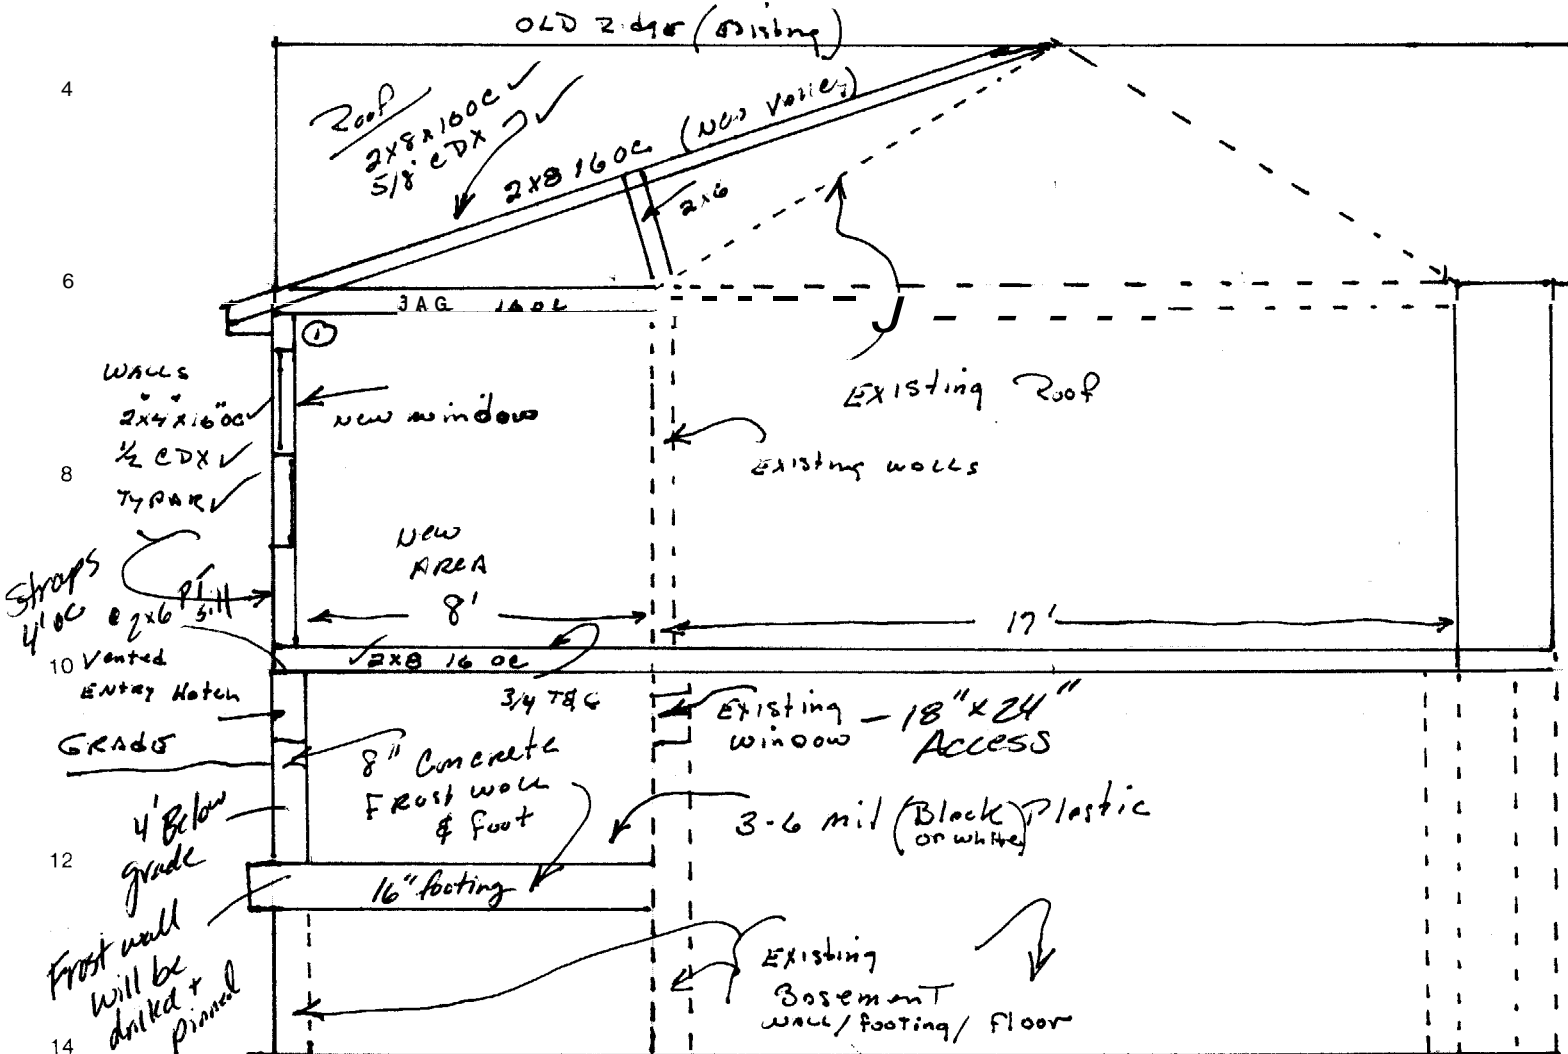 OLD Ridge (Existing)
4
Roof
2x8x16OC ✓
5/8" CDX ✓
2x8 16 OC (New Valley)
2x6
6
JAG 16 OC
1
WALLS
2"x4"x16"OC ✓
1/2 CDX ✓
TYPAR ✓
New window
Existing Roof
Existing walls
8
New
AREA
8'
17'
Straps
4' OC @ 2x6 PT
sill
10
✓ 2x8 16 OC
3/4 T&G
Vented
Entry Hatch
Existing
window
– 18" x 24"
Access
GRADE
8" Concrete
Frost wall
& foot
4' Below
grade
3-6 mil (Black
or white) Plastic
12
16" footing
Frost wall
will be
drilled +
pinned
Existing
Basement
wall/footing/floor
14